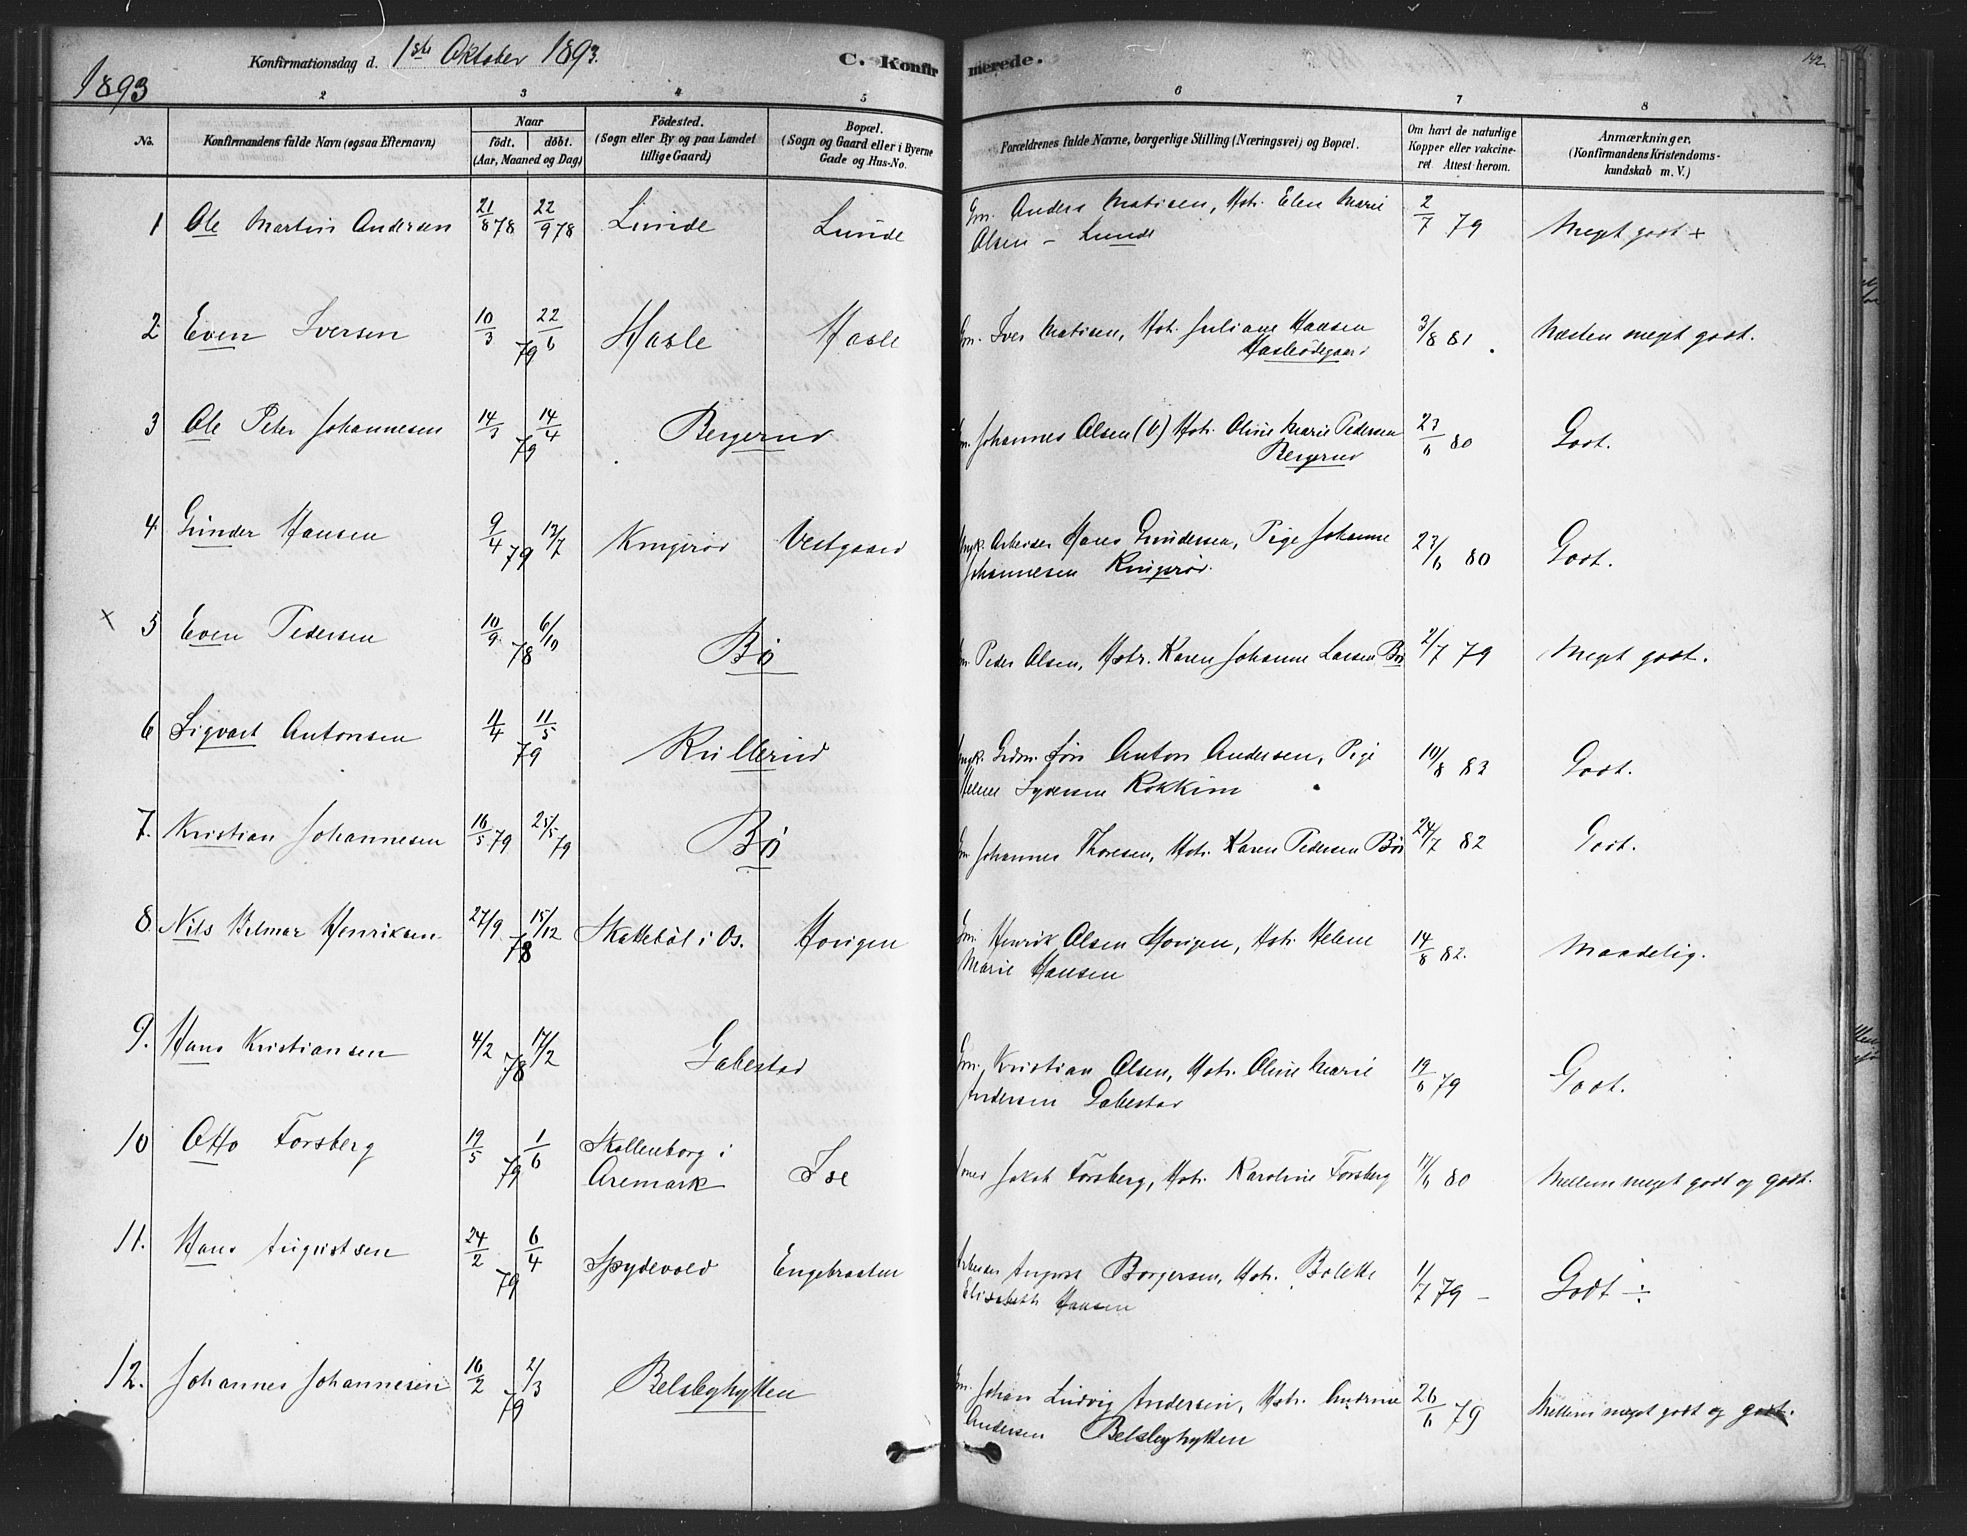 1893
Konfirmationsdag d. 1ste Oktober 1893.
C. Konfirmerede.
142.
2 3 4 5 6 7 8
No.
Konfirmandens fulde Navn (ogsaa Efternavn)
Naar
født. døbt.
(Aar, Maaned og Dag)
Fødested.
(Sogn eller By og paa Landet
tillige Gaard)
Bopæl.
(Sogn og Gaard eller i Byerne
Gade og Hus-No.
Forældrenes fulde Navne, borgerlige Stilling (Næringsvei) og Bopæl.
Om havt de naturlige
Kopper eller vakcine-
ret Attest herom.
Anmærkninger.
(Konfirmandens Kristendoms-
kundskab m. V.)
1 Ole Martin Andersen 21/8 78 22/9 78 Lunde Lunde Gm. Anders Matisen, Hstr. Elen Marie
Olsen - Lunde 2/7 79 Meget godt +
2 Even Iversen 10/3 22/6 79 Hasle Hasle Gm. Iver Matisen, Hst. Juliane Hansen
Hasleødegaard 3/8 81 Næsten meget godt.
3 Ole Peter Johannesen 14/3 14/4 79 Bergerud Gm. Johannes Olsen Hstr. Oline Marie Pedersen
Bergerud 23/6 80 Godt.
4 Gunder Hansen 9/4 13/7 79 Kingerød Vestgaard Ungk. Arbeider Hans Gundersen, Pige Johanne
Johannesen Kingerød. 23/6 80 Godt.
x 5 Even Pedersen 10/9 6/10 78 Bø Gm. Peder Olsen, Hstr. Karen Johanne Larsen Bø 2/7 79 Meget godt.
6 Sigvart Antonsen 11/4 11/5 79 Kullerud Ungk. Grdm. søn Anton Andersen, Pige
Helene Syversen Rokkim 10/8 83 Godt.
7. Kristian Johannesen 16/5 79 25/5 79 Bø Gm. Johannes Thoresen, Hstr. Karen Pedersen Bø 24/7 82 Godt.
8 Nils Hilmar Henriksen 27/9 15/12 78 Skattebøl i Os. Horigen Gm. Henrik Olsen Horigen, Hstr. Helene
Marie Hansen 14/8 82. Maadelig.
9. Hans Kristiansen 4/2 17/2 78 Gabestad Gm. Kristian Olsen, Hstr. Oline Marie
Andersen Gabestad 19/6 79 Godt.
10 Otto Forsberg 19/5 1/6 79 Skollenborg i
Aremark Ise Jakob Forsberg, Hstr. Karoline Forsberg 17/6 80 Mellem meget godt og godt.
11. Hans Augustsen 24/2 6/4 79 Spydevold Engebraaten Arbeider August Borgersen, Hstr. Bolette
Elisabeth Hansen 1/7 79 - Godt ÷
12. Johannes Johannesen 16/2 2/3 79 Belsbyhytten Gm. Johan Ludvig Andersen, Hstr. Andrine
Andersen Belsbyhytten 26/6 79 Mellem meget godt og godt.